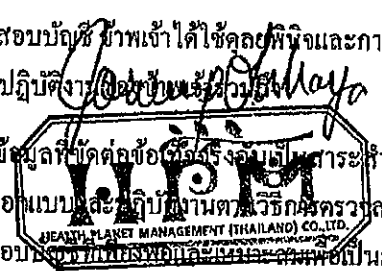 สอบบัญชี ข้าพเจ้าได้ใช้ดุลยพินิจและกา
ปฏิบัติงาน
ข้อมูลที่ขัดต่อข้อเท็จจริงอันเป็นสาระสำ
ออกแบบและปฏิบัติงานตามวิธีการตรวจส
HPM
HEALTH PLANET MANAGEMENT (THAILAND) CO.,LTD.
อบบัญชีที่เพียงพอและเหมาะสมเพื่อเป็น